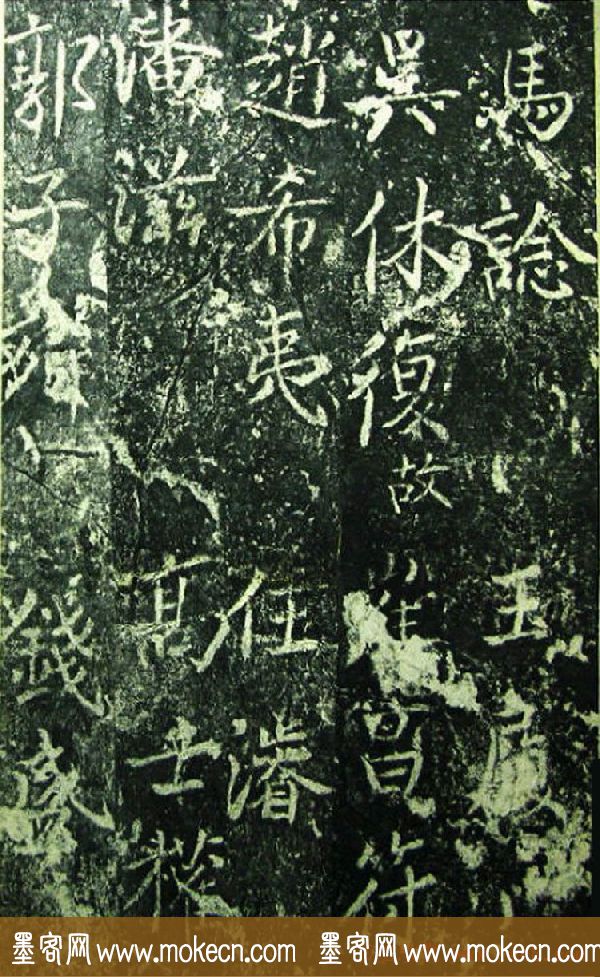 馮諗 王
吳休復故 崔昌符
趙希夷 任濬
潘滋 高士權
郭子 錢盛
墨客网 www.mokecn.com 墨客网 www.mokecn.com